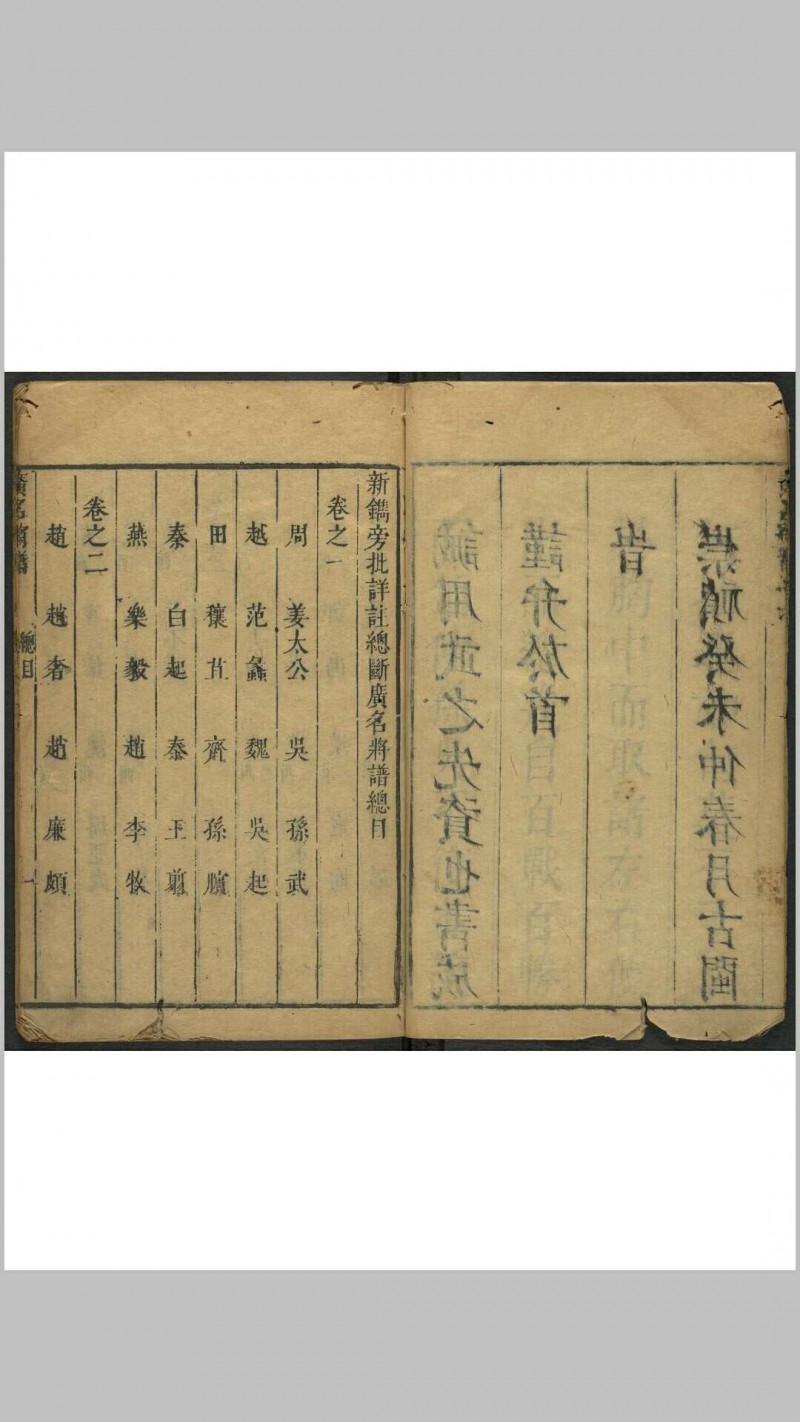 誠用武之先資也書成
謹弁於首
旹
崇禎癸未仲春月古閩
新鐫旁批詳註總斷廣名將譜總目
卷之一
周 姜太公 吳 孫武
越 范蠡 魏 吳起
田 穰苴 齊 孫臏
秦 白起 秦 王翦
燕 樂毅 趙 李牧
卷之二
趙 趙奢 趙 廉頗
廣名將譜 總目 一